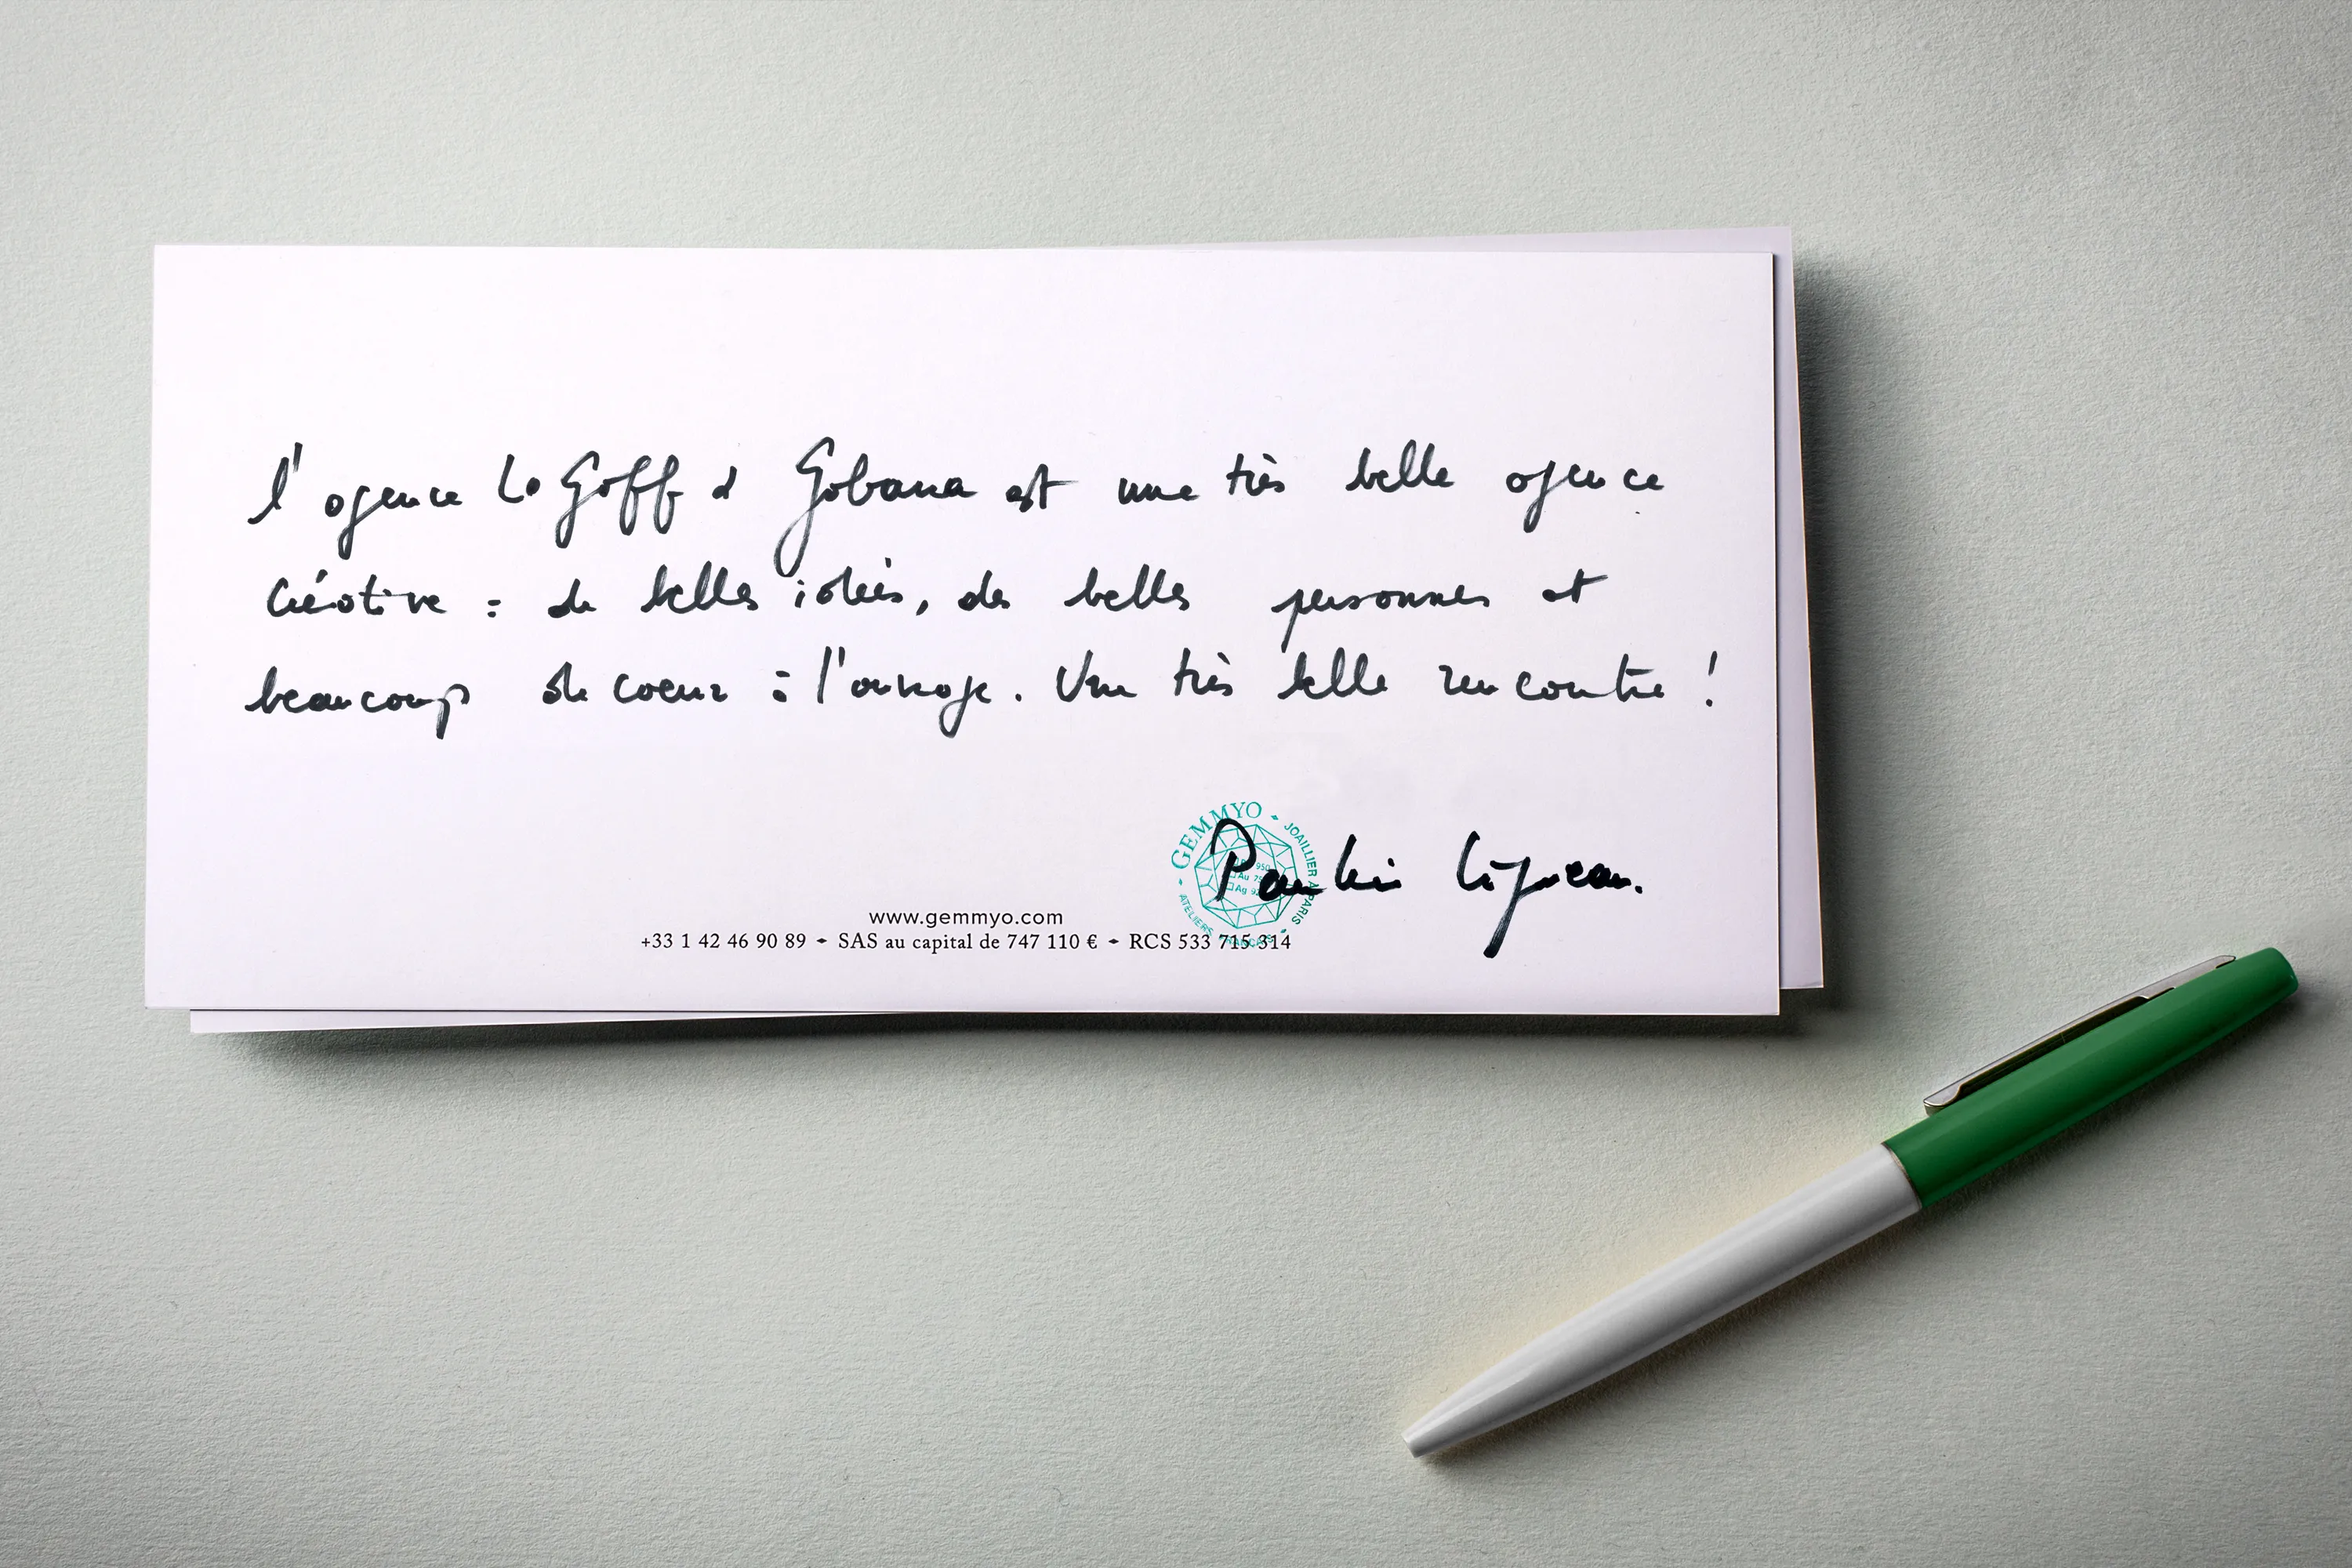 l'agence Le Goff & Gabana est une très belle agence
créative : de belles idées, des belles personnes et
beaucoup de coeur à l'ouvrage. Une très belle rencontre !
GEMMYO JOAILLIER A PARIS ATELIERS FRANÇAIS
950
Au 75
Ag 92
Pauline Laigneau.
www.gemmyo.com
+33 1 42 46 90 89 ✦ SAS au capital de 747 110 € ✦ RCS 533 715 314